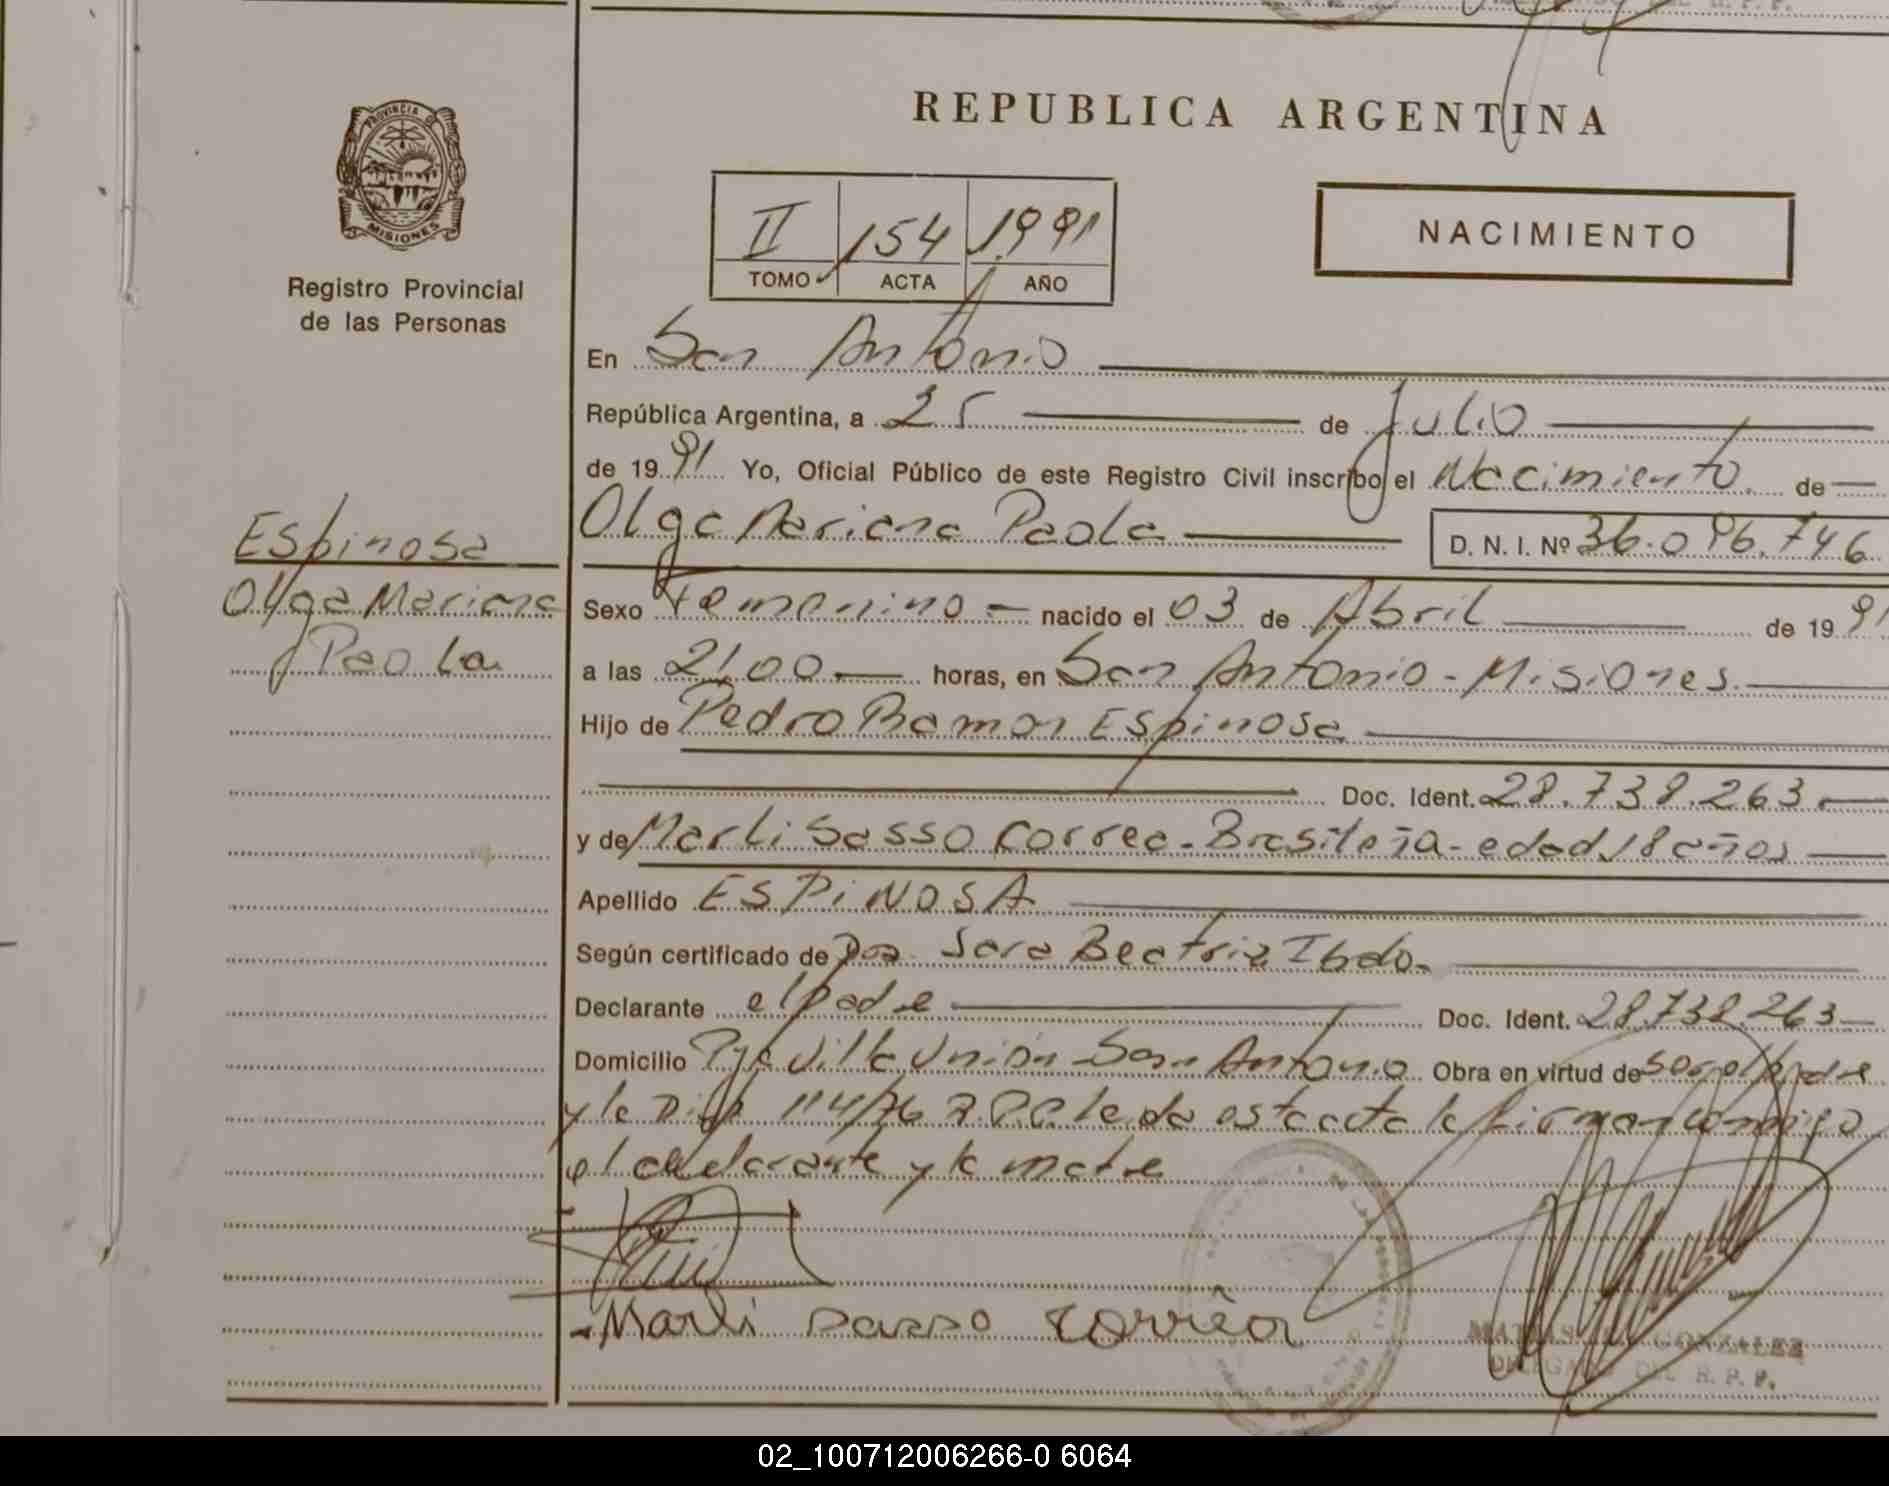 REPUBLICA ARGENTINA
PROVINCIA DE
MISIONES
Registro Provincial
de las Personas
II 154 1991
TOMO ACTA AÑO
NACIMIENTO
En San Antonio
República Argentina, a 25 de Julio
de 1991 Yo, Oficial Público de este Registro Civil inscribo el Nacimiento de
Olga Mariana Paola D. N. I. Nº 36.096.746
Espinosa
Olga Mariana
Paola
Sexo Femenino nacido el 03 de Abril de 1991
a las 21,00 horas, en San Antonio - Misiones.
Hijo de Pedro Ramon Espinosa
Doc. Ident. 28.738.263
y de Marli Sasso Correa - Brasileña - edad 18 años
Apellido ESPINOSA
Según certificado de Dra. Sara Beatriz
Declarante el padre Doc. Ident. 28.738.263
Domicilio Pje Villa Unión - San Antonio Obra en virtud de ser el padre
y la 114/76 leida esta acta la firman conmigo
el declarante y la madre
Marli Sasso Corrêa
GONZALEZ
DELEGADO DEL R. P. P.
02_100712006266-0 6064